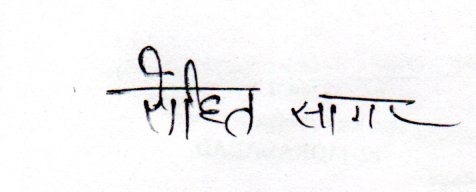 रोहित सागर